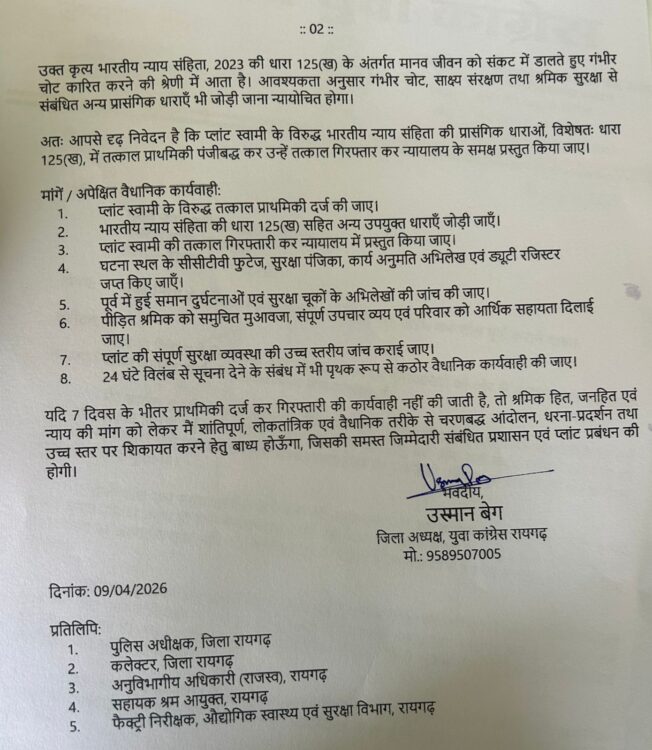 :: 02 ::
उक्त कृत्य भारतीय न्याय संहिता, 2023 की धारा 125(ख) के अंतर्गत मानव जीवन को संकट में डालते हुए गंभीर
चोट कारित करने की श्रेणी में आता है। आवश्यकता अनुसार गंभीर चोट, साक्ष्य संरक्षण तथा श्रमिक सुरक्षा से
संबंधित अन्य प्रासंगिक धाराएँ भी जोड़ी जाना न्यायोचित होगा।
अतः आपसे दृढ़ निवेदन है कि प्लांट स्वामी के विरुद्ध भारतीय न्याय संहिता की प्रासंगिक धाराओं, विशेषतः धारा
125(ख), में तत्काल प्राथमिकी पंजीबद्ध कर उन्हें तत्काल गिरफ्तार कर न्यायालय के समक्ष प्रस्तुत किया जाए।
मांगें / अपेक्षित वैधानिक कार्यवाही:
1. प्लांट स्वामी के विरुद्ध तत्काल प्राथमिकी दर्ज की जाए।
2. भारतीय न्याय संहिता की धारा 125(ख) सहित अन्य उपयुक्त धाराएँ जोड़ी जाएँ।
3. प्लांट स्वामी की तत्काल गिरफ्तारी कर न्यायालय में प्रस्तुत किया जाए।
4. घटना स्थल के सीसीटीवी फुटेज, सुरक्षा पंजिका, कार्य अनुमति अभिलेख एवं ड्यूटी रजिस्टर
जप्त किए जाएँ।
5. पूर्व में हुई समान दुर्घटनाओं एवं सुरक्षा चूकों के अभिलेखों की जांच की जाए।
6. पीड़ित श्रमिक को समुचित मुआवजा, संपूर्ण उपचार व्यय एवं परिवार को आर्थिक सहायता दिलाई
जाए।
7. प्लांट की संपूर्ण सुरक्षा व्यवस्था की उच्च स्तरीय जांच कराई जाए।
8. 24 घंटे विलंब से सूचना देने के संबंध में भी पृथक रूप से कठोर वैधानिक कार्यवाही की जाए।
यदि 7 दिवस के भीतर प्राथमिकी दर्ज कर गिरफ्तारी की कार्यवाही नहीं की जाती है, तो श्रमिक हित, जनहित एवं
न्याय की मांग को लेकर मैं शांतिपूर्ण, लोकतांत्रिक एवं वैधानिक तरीके से चरणबद्ध आंदोलन, धरना-प्रदर्शन तथा
उच्च स्तर पर शिकायत करने हेतु बाध्य होऊँगा, जिसकी समस्त जिम्मेदारी संबंधित प्रशासन एवं प्लांट प्रबंधन की
होगी।
भवदीय,
उस्मान बेग
जिला अध्यक्ष, युवा कांग्रेस रायगढ़
मो.: 9589507005
दिनांक: 09/04/2026
प्रतिलिपि:
1. पुलिस अधीक्षक, जिला रायगढ़
2. कलेक्टर, जिला रायगढ़
3. अनुविभागीय अधिकारी (राजस्व), रायगढ़
4. सहायक श्रम आयुक्त, रायगढ़
5. फैक्ट्री निरीक्षक, औद्योगिक स्वास्थ्य एवं सुरक्षा विभाग, रायगढ़